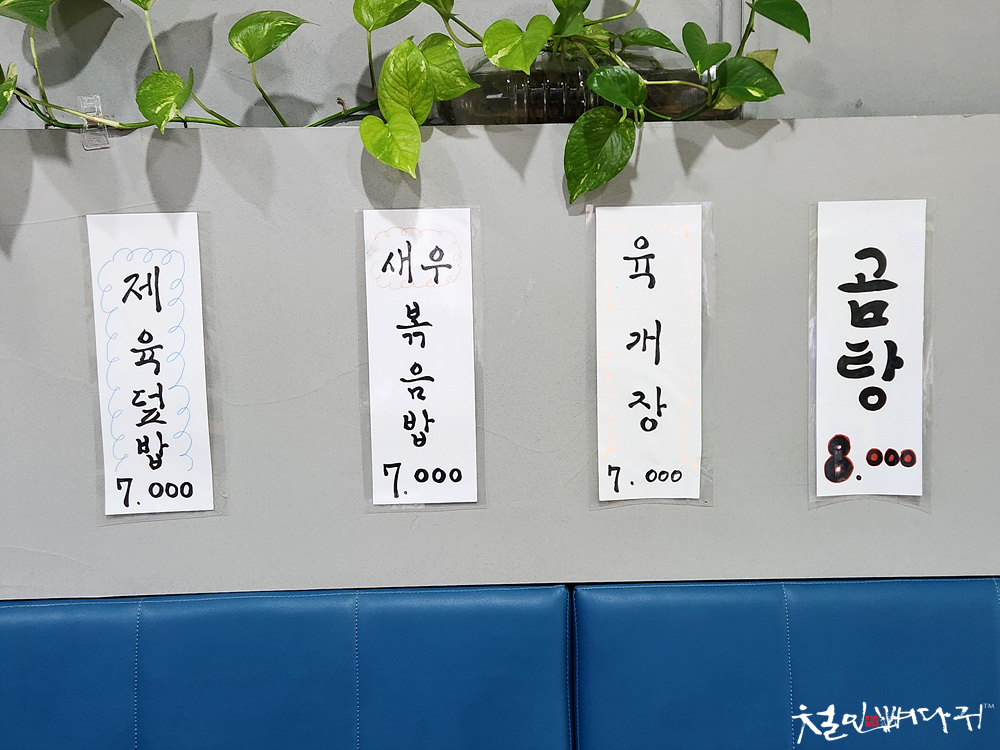 제육덮밥
7.000
새우
볶음밥
7.000
육개장
7.000
곰탕
8.000